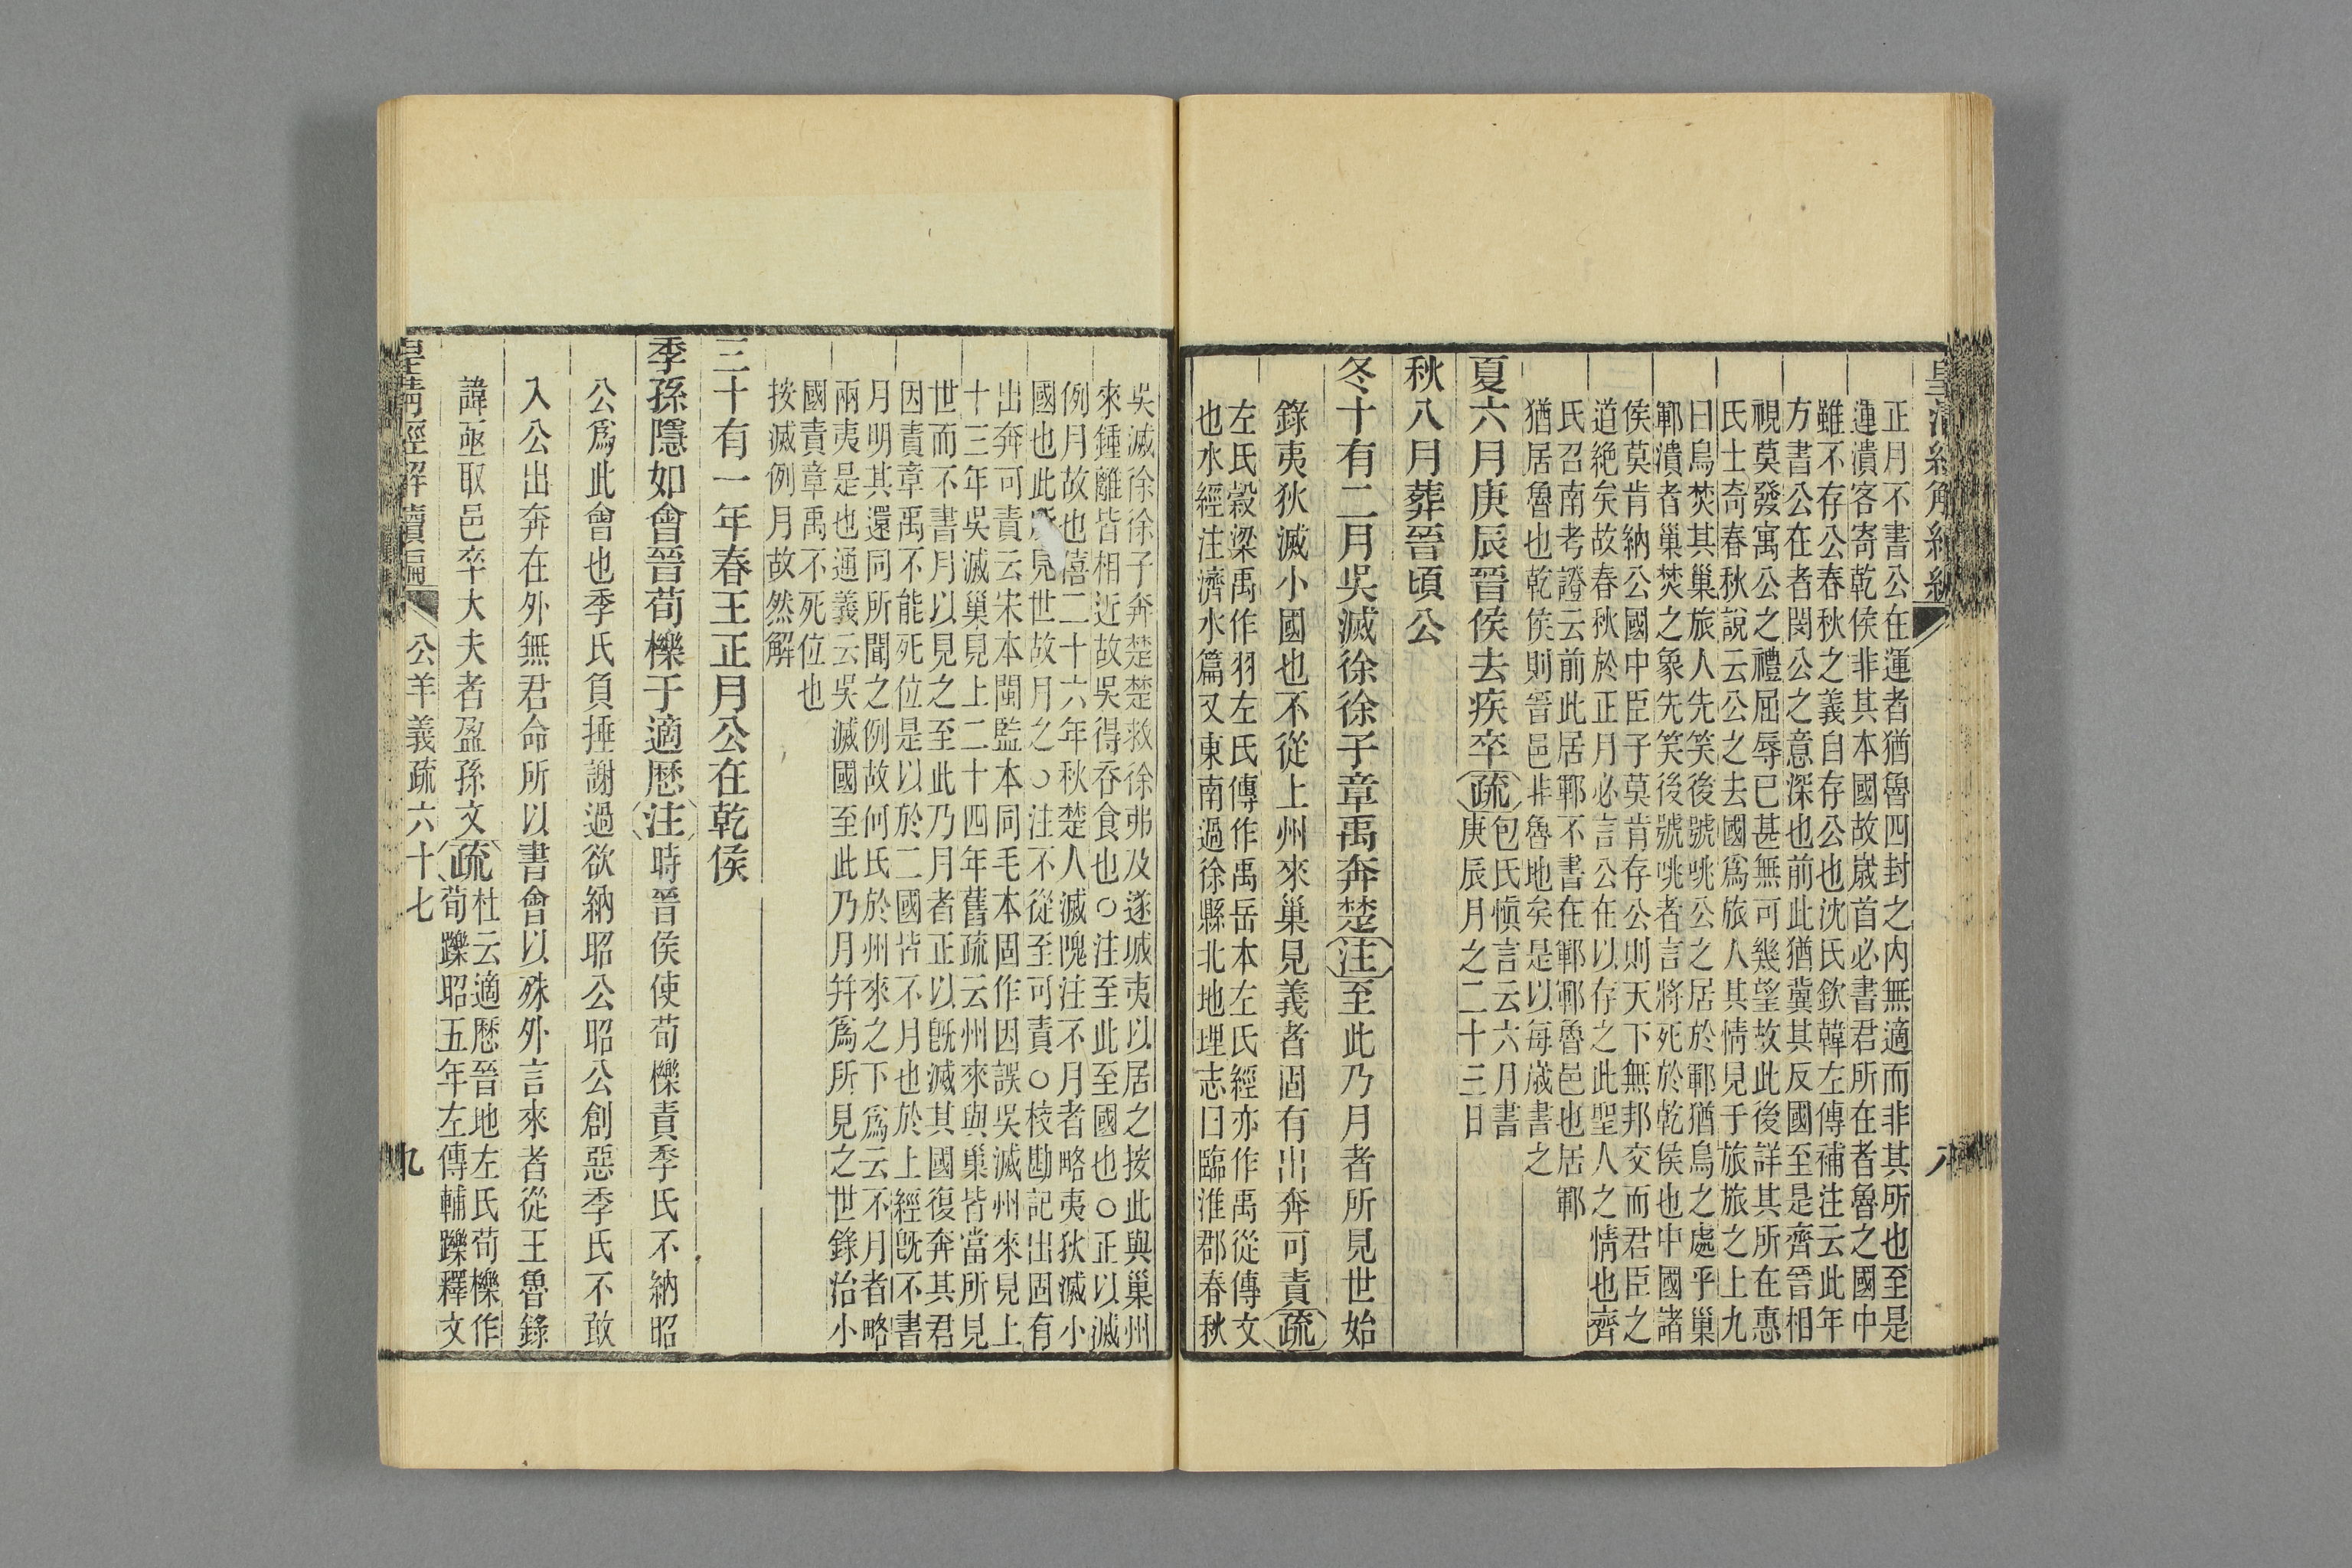 正月不書公在運者猶魯四封之內無適而非其所也至是
運潰客寄乾侯非其本國故歲首必書君所在者魯之國中
雖不存公春秋之義自存公也沈氏欽韓左傳補注云此年
方書公在者閔公之意深也前此猶冀其反國至是齊晉相
視莫發寓公之禮屈辱已甚無可幾望故此後詳其所在惠
氏士奇春秋說云公之去國爲旅人其情見于旅旅之上九
曰鳥焚其巢旅人先笑後號咷公之居於鄆猶鳥之處乎巢
鄆潰者巢焚之象先笑後號咷者言將死於乾侯也中國諸
侯莫肯納公國中臣子莫肯存公則天下無邦交而君臣之
道絶矣故春秋於正月必言公在以存之此聖人之情也齊
氏召南考證云前此居鄆不書在鄆鄆魯邑也居鄆
猶居魯也乾侯則晉邑非魯地矣是以每歲書之
夏六月庚辰晉侯去疾卒疏包氏愼言云六月書
庚辰月之二十三日
秋八月葬晉頃公
冬十有二月吳滅徐徐子章禹奔楚注至此乃月者所見世始
錄夷狄滅小國也不從上州來巢見義者固有出奔可責疏
左氏穀梁禹作羽左氏傳作禹岳本左氏經亦作禹從傳文
也水經注濟水篇又東南過徐縣北地理志曰臨淮郡春秋
八
吳滅徐徐子奔楚楚救徐弗及遂城夷以居之按此與巢州
來鍾離皆相近故吳得吞食也○注至此至國也○正以滅
例月故也僖二十六年秋楚人滅隗注不月者略夷狄滅小
國也此見世故月之○注不從至可責○校勘記出固有
出奔可責云宋本閩監本同毛本固作因誤吳滅州來見上
十三年吳滅巢見上二十四年舊疏云州來與巢皆當所見
世而不書月以見之至此乃月者正以旣滅其國復奔其君
因責章禹不能死位是以於二國皆不月也於上經旣不書
月明其還同所聞之例故何氏於州來之下爲云不月者略
兩夷是也通義云吳滅國至此乃月幷爲所見之世錄治小
國責章禹不死位也
按滅例月故然解
三十有一年春王正月公在乾侯
季孫隱如會晉荀櫟于適歷注時晉侯使荀櫟責季氏不納昭
公爲此會也季氏負捶謝過欲納昭公昭公創惡季氏不敢
入公出奔在外無君命所以書會以殊外言來者從王魯錄
諱亟取邑卒大夫者盈孫文疏杜云適歷晉地左氏荀櫟作
荀躒昭五年左傳輔躒釋文
皇淸經解續編
公羊義疏六十七
九